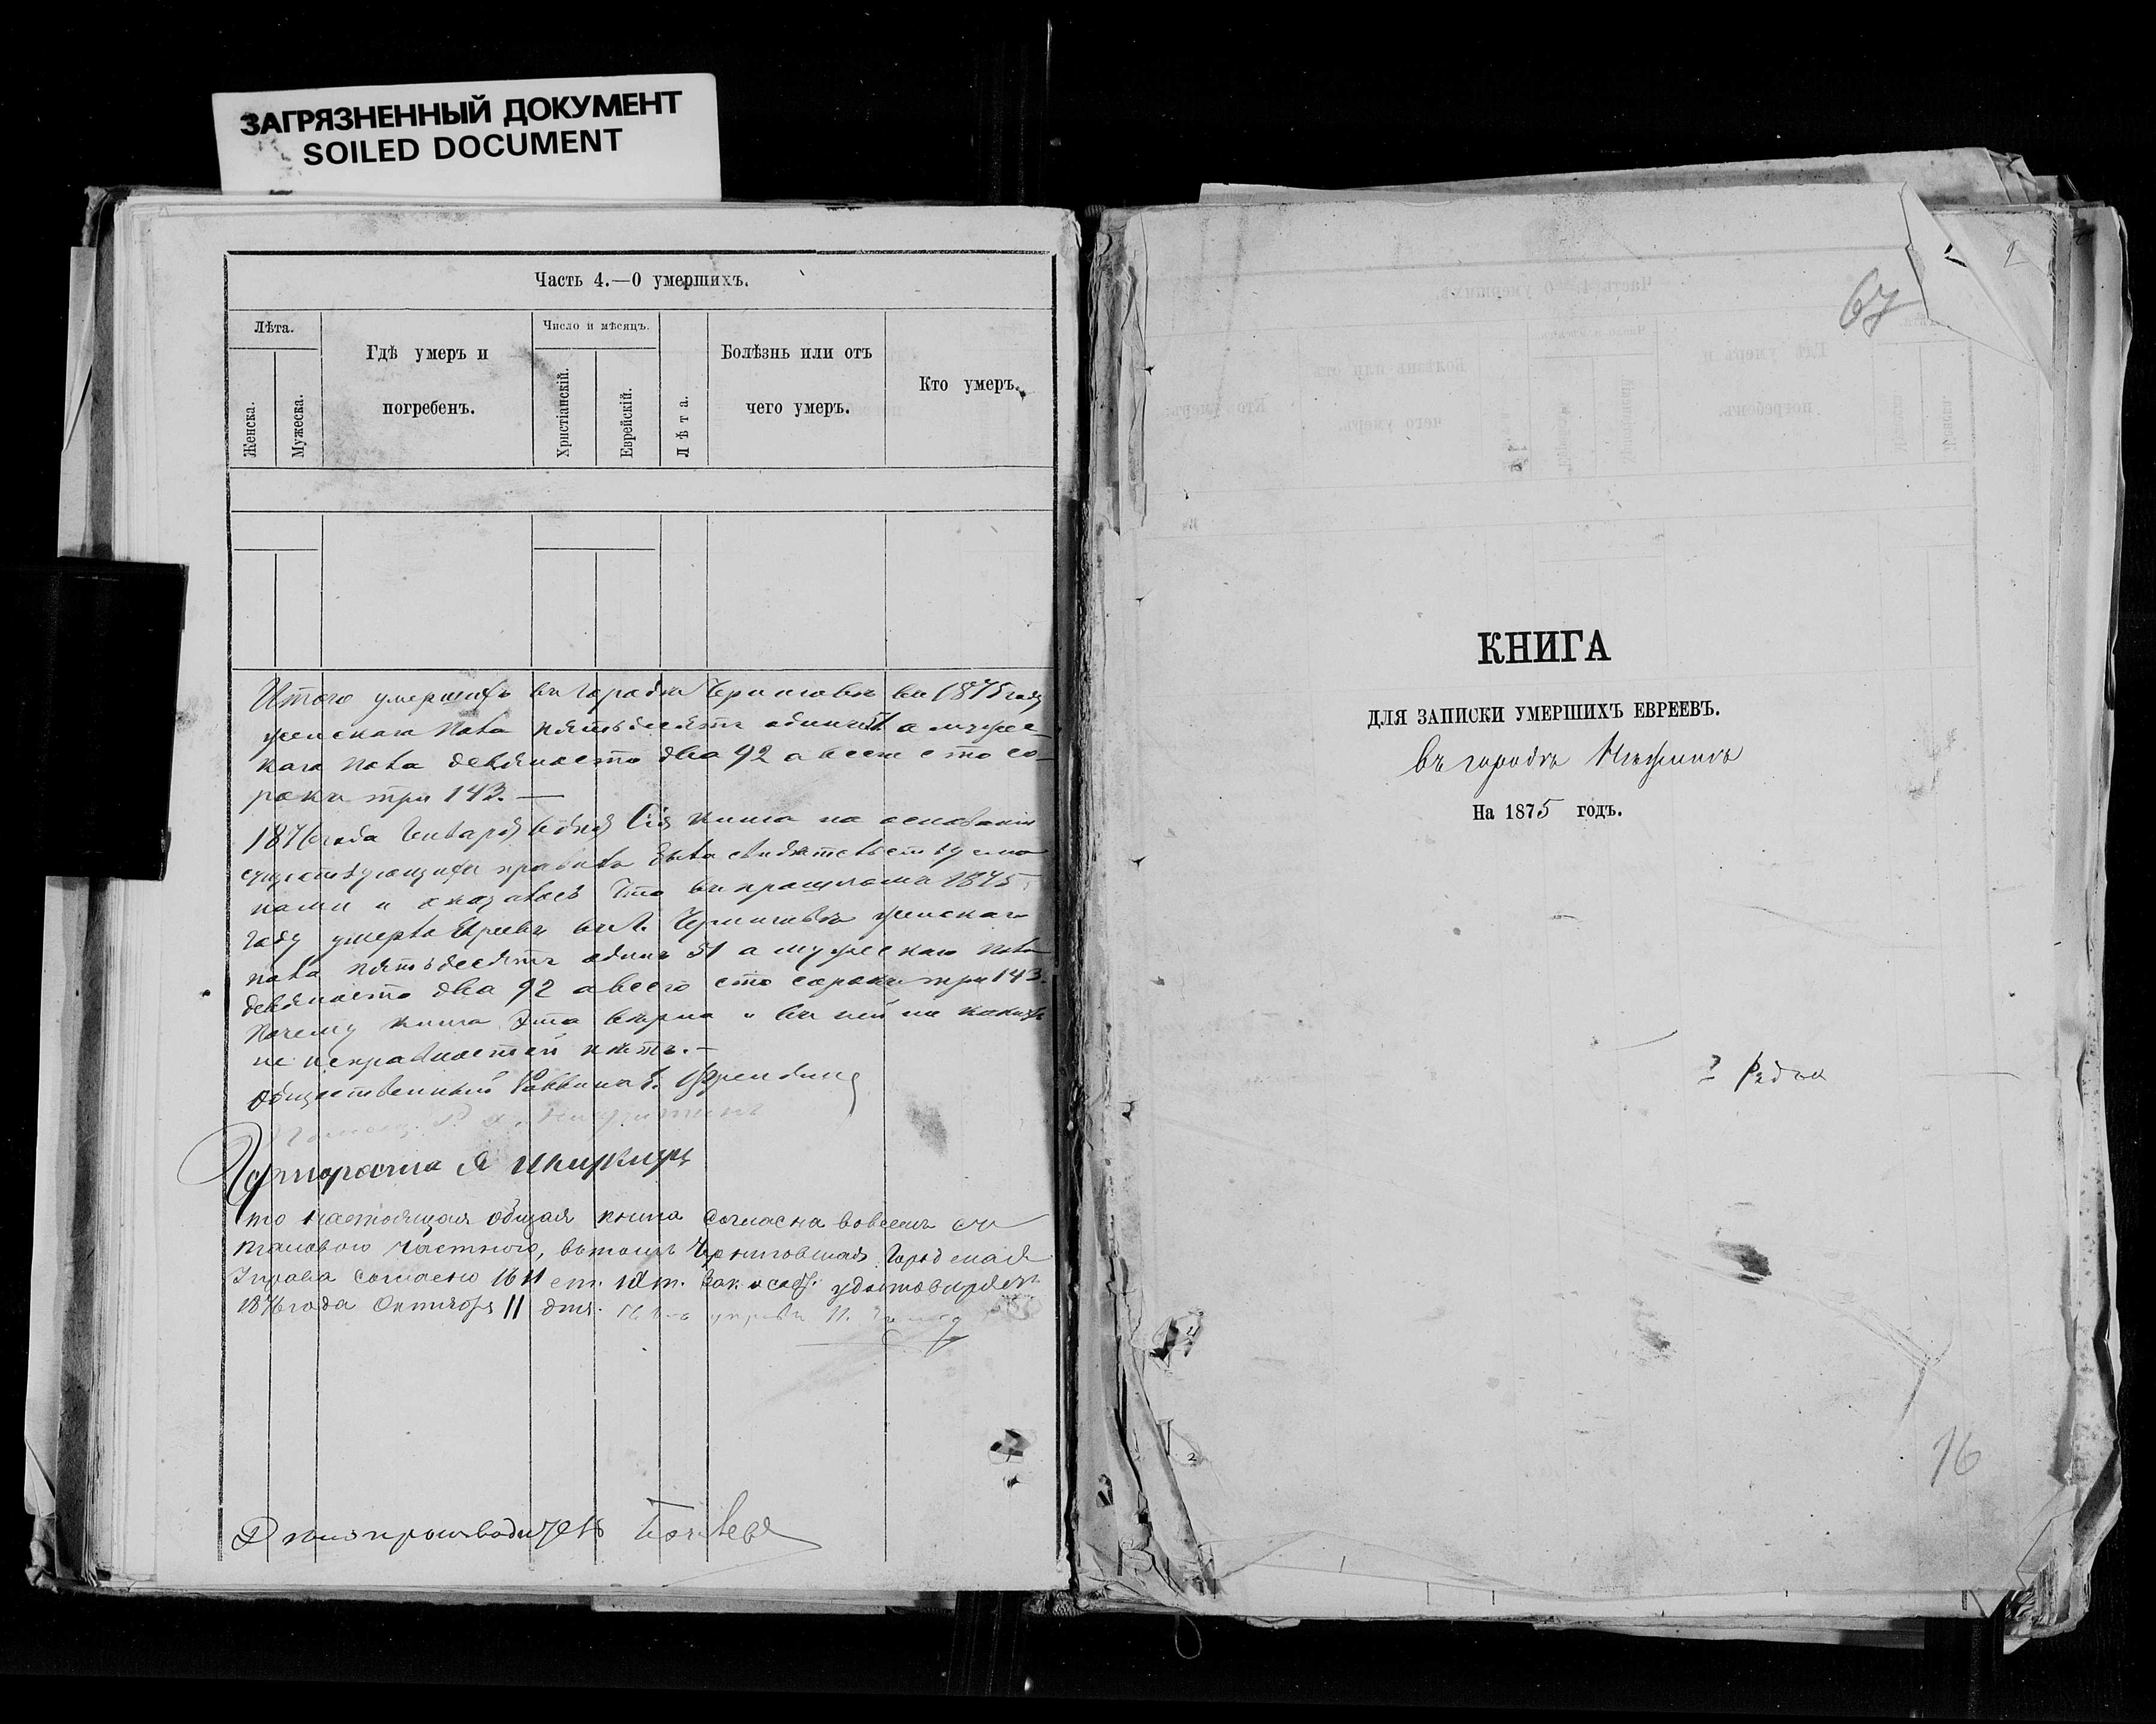 ЗАГРЯЗНЕННЫЙ ДОКУМЕНТ
SOILED DOCUMENT
Часть 4.—О умершихъ.
Лѣта.
Женска.
Мужеска.
Гдѣ умеръ и
погребенъ.
Число и мѣсяцъ.
Христіанскій.
Еврейскій.
Лѣта.
Болѣзнь или отъ
чего умеръ.
Кто умеръ.
Итого умершихъ въ городѣ Черниговѣ въ 1875 году
женскаго пола пятьдесятъ одинъ а мужес-
каго пола девяносто два 92 а всего сто со-
рокъ три 143. —
1876 года Генваря дня Сія книга на основаніи
существующихъ правилъ была свидѣтельствуема
нами и оказалось что въ прошломъ 1875
году умерло Евреевъ въ г. Черниговѣ женскаго
пола пятьдесятъ одинъ 51 а мужескаго пола
девяносто два 92 а всего сто сорокъ три 143.
Почему книга эта вѣрна и въ ней не какихъ
не исправностей нѣтъ. —
Общественный Раввинъ
Что настоящая общая книга согласна вовсемъ съ
таковою частною, вотомъ Черниговская Городская
Управа согласно 1611 ст. Зак. о сост. удостовѣряетъ
1876 года Октября 11 дня.
Дѣлопроизводитель
67
КНИГА
ДЛЯ ЗАПИСКИ УМЕРШИХЪ ЕВРЕЕВЪ.
въ городѣ Нѣжинѣ
На 1875 годъ.
16